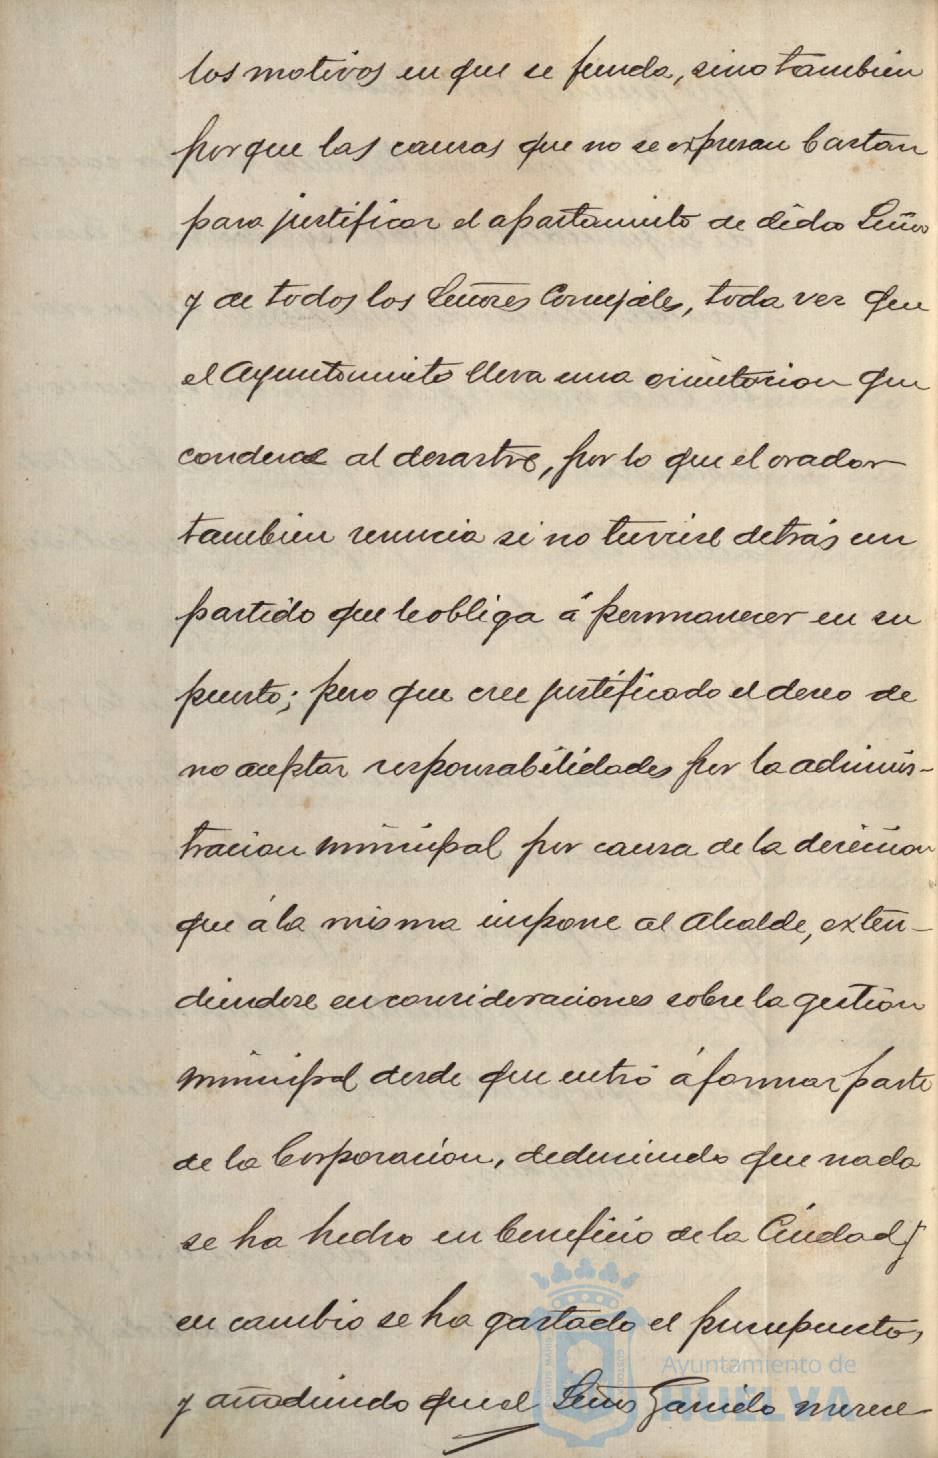 los motivos en que se funda, sino tambien
porque las causas que no se expresan bastan
para justificar el apartamiento de dicho Señor
y de todos los Señores Concejales, toda vez que
el Ayuntamiento lleva una orientacion que
conduce al desastre, por lo que el orador
tambien renuncia si no tuviese detrás un
partido que le obliga á permanecer en su
puesto; pero que cree justificado el deseo de
no aceptar responsabilidades por la adminis-
tracion municipal por causa de la direccion
que á la misma impone el Alcalde, exten-
diendose en consideraciones sobre la gestión
municipal desde que entró á formar parte
de la Corporacion, deduciendo que nada
se ha hecho en beneficio de la Ciudad y
en cambio se ha gastado el presupuesto,
y añadiendo que el Señor Garrido merece
Ayuntamiento de
HUELVA